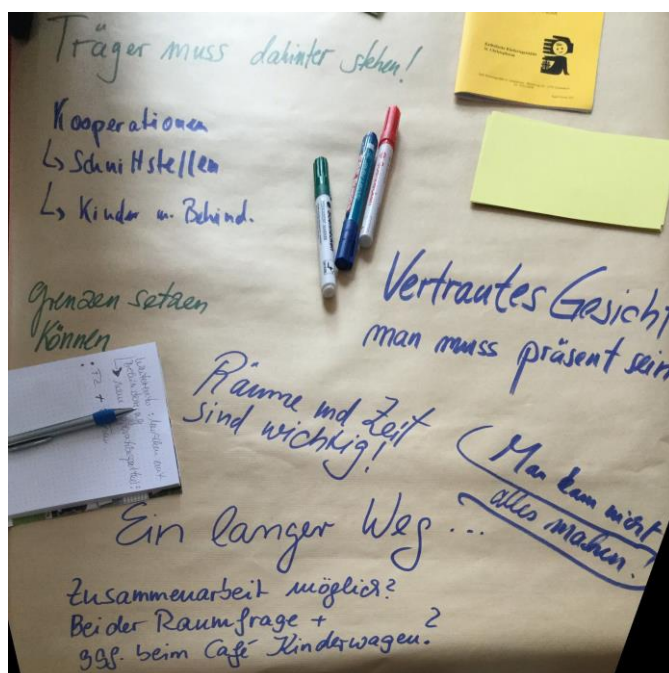 Träger muss dahinter stehen!
Kooperationen
↳ Schnittstellen
↳ Kinder m. Behind.
Grenzen setzen
können
Vertrautes Gesicht
man muss präsent sein
Räume und Zeit
sind wichtig!
Man kann nicht
alles machen!
Ein langer Weg ...
Zusammenarbeit möglich?
Bei der Raumfrage +
ggf. beim Café Kinderwagen?